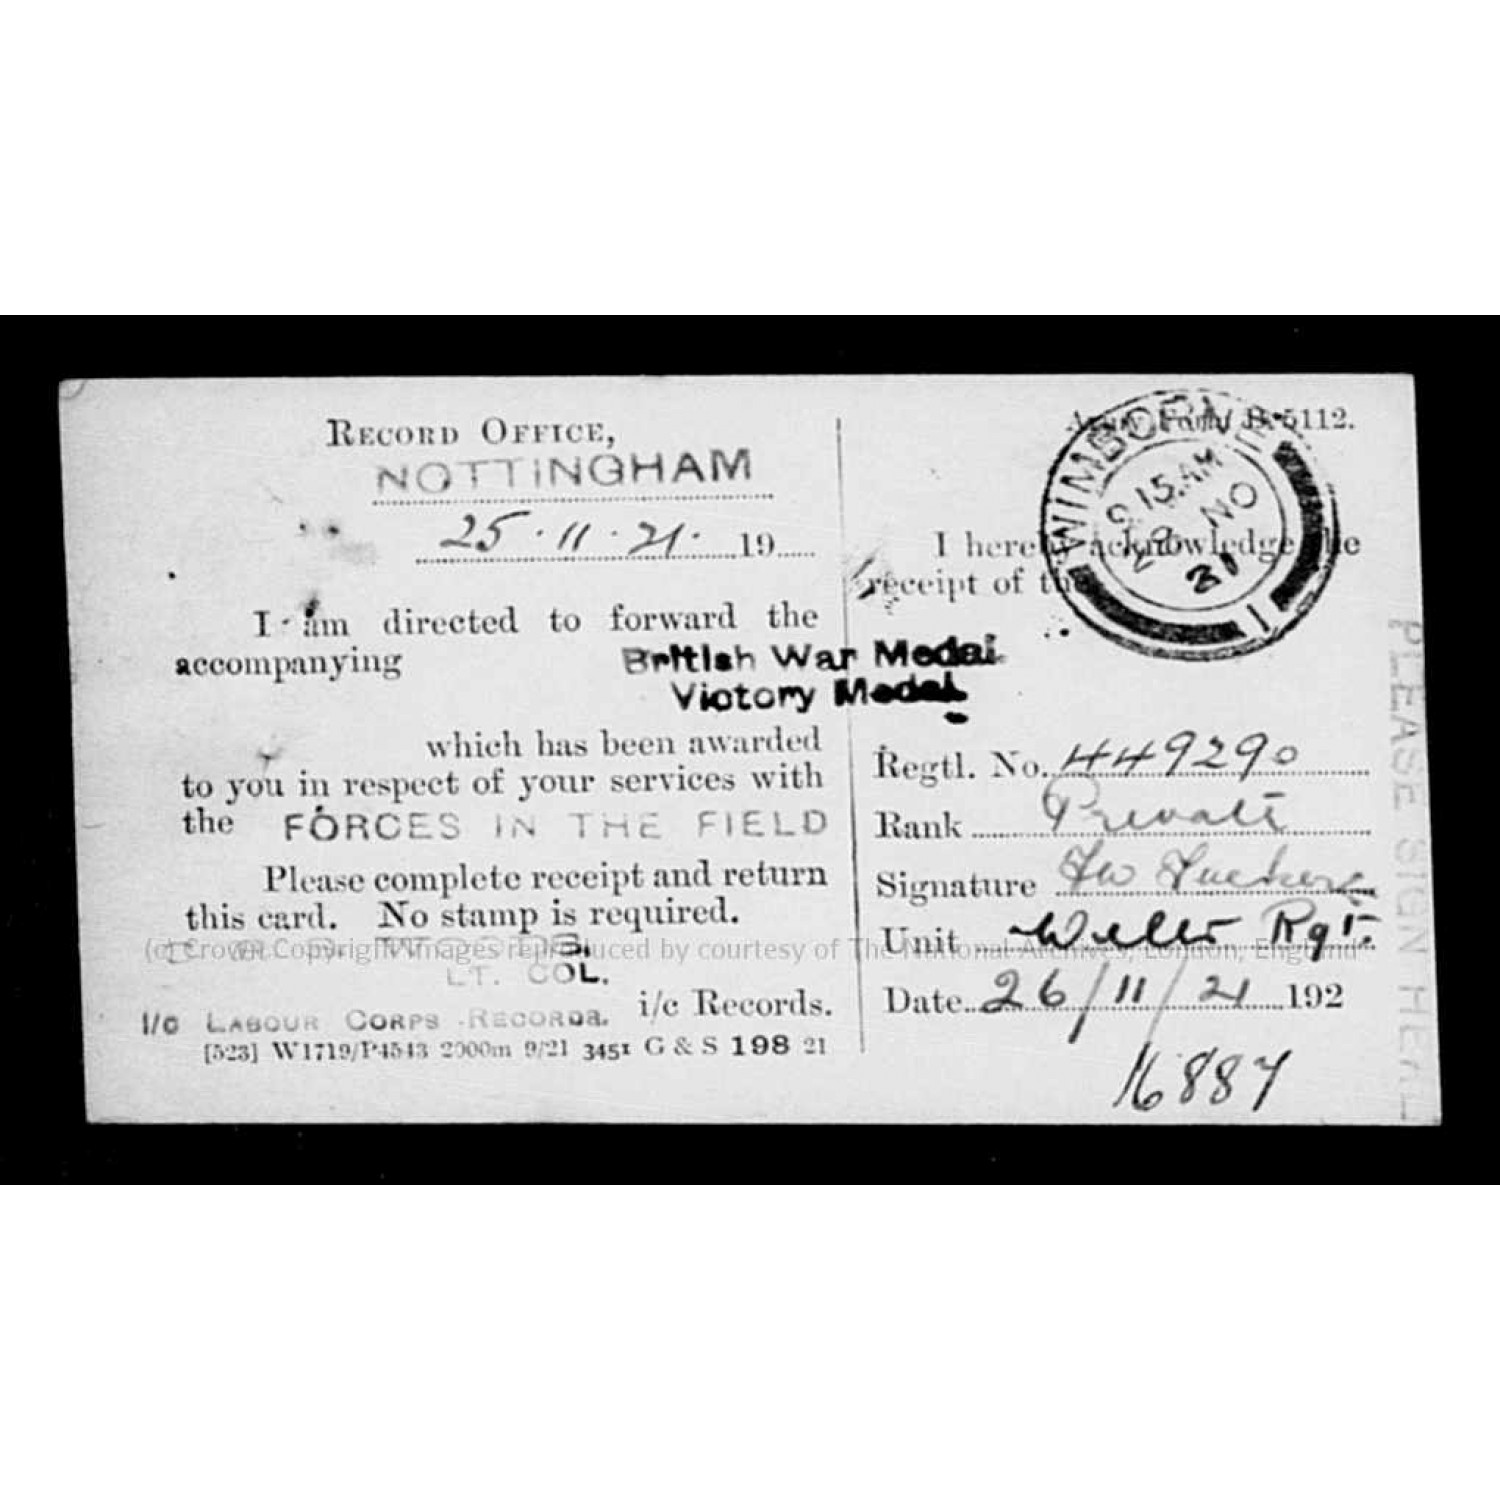 RECORD OFFICE,
NOTTINGHAM
25.11.21. 19
I am directed to forward the
accompanying
British War Medal
Victory Medal
which has been awarded
to you in respect of your services with
the FORCES IN THE FIELD
Please complete receipt and return
this card. No stamp is required.
LT. COL.
i/c Records.
I/C LABOUR CORPS RECORDS.
[523] W1719/P4543 2000m 9/21 3451 G & S 198 21
Army Form B. 5112.
WIMBORNE
9 15.AM
NO
21
1
I hereby acknowledge the
receipt of the
Regtl. No. 449290
Rank Private
Signature
Unit Wilts Rgt.
Date 26/11/21 192
16887
PLEASE SIGN HERE
(c) Crown Copyright Images reproduced by courtesy of The National Archives, London, England